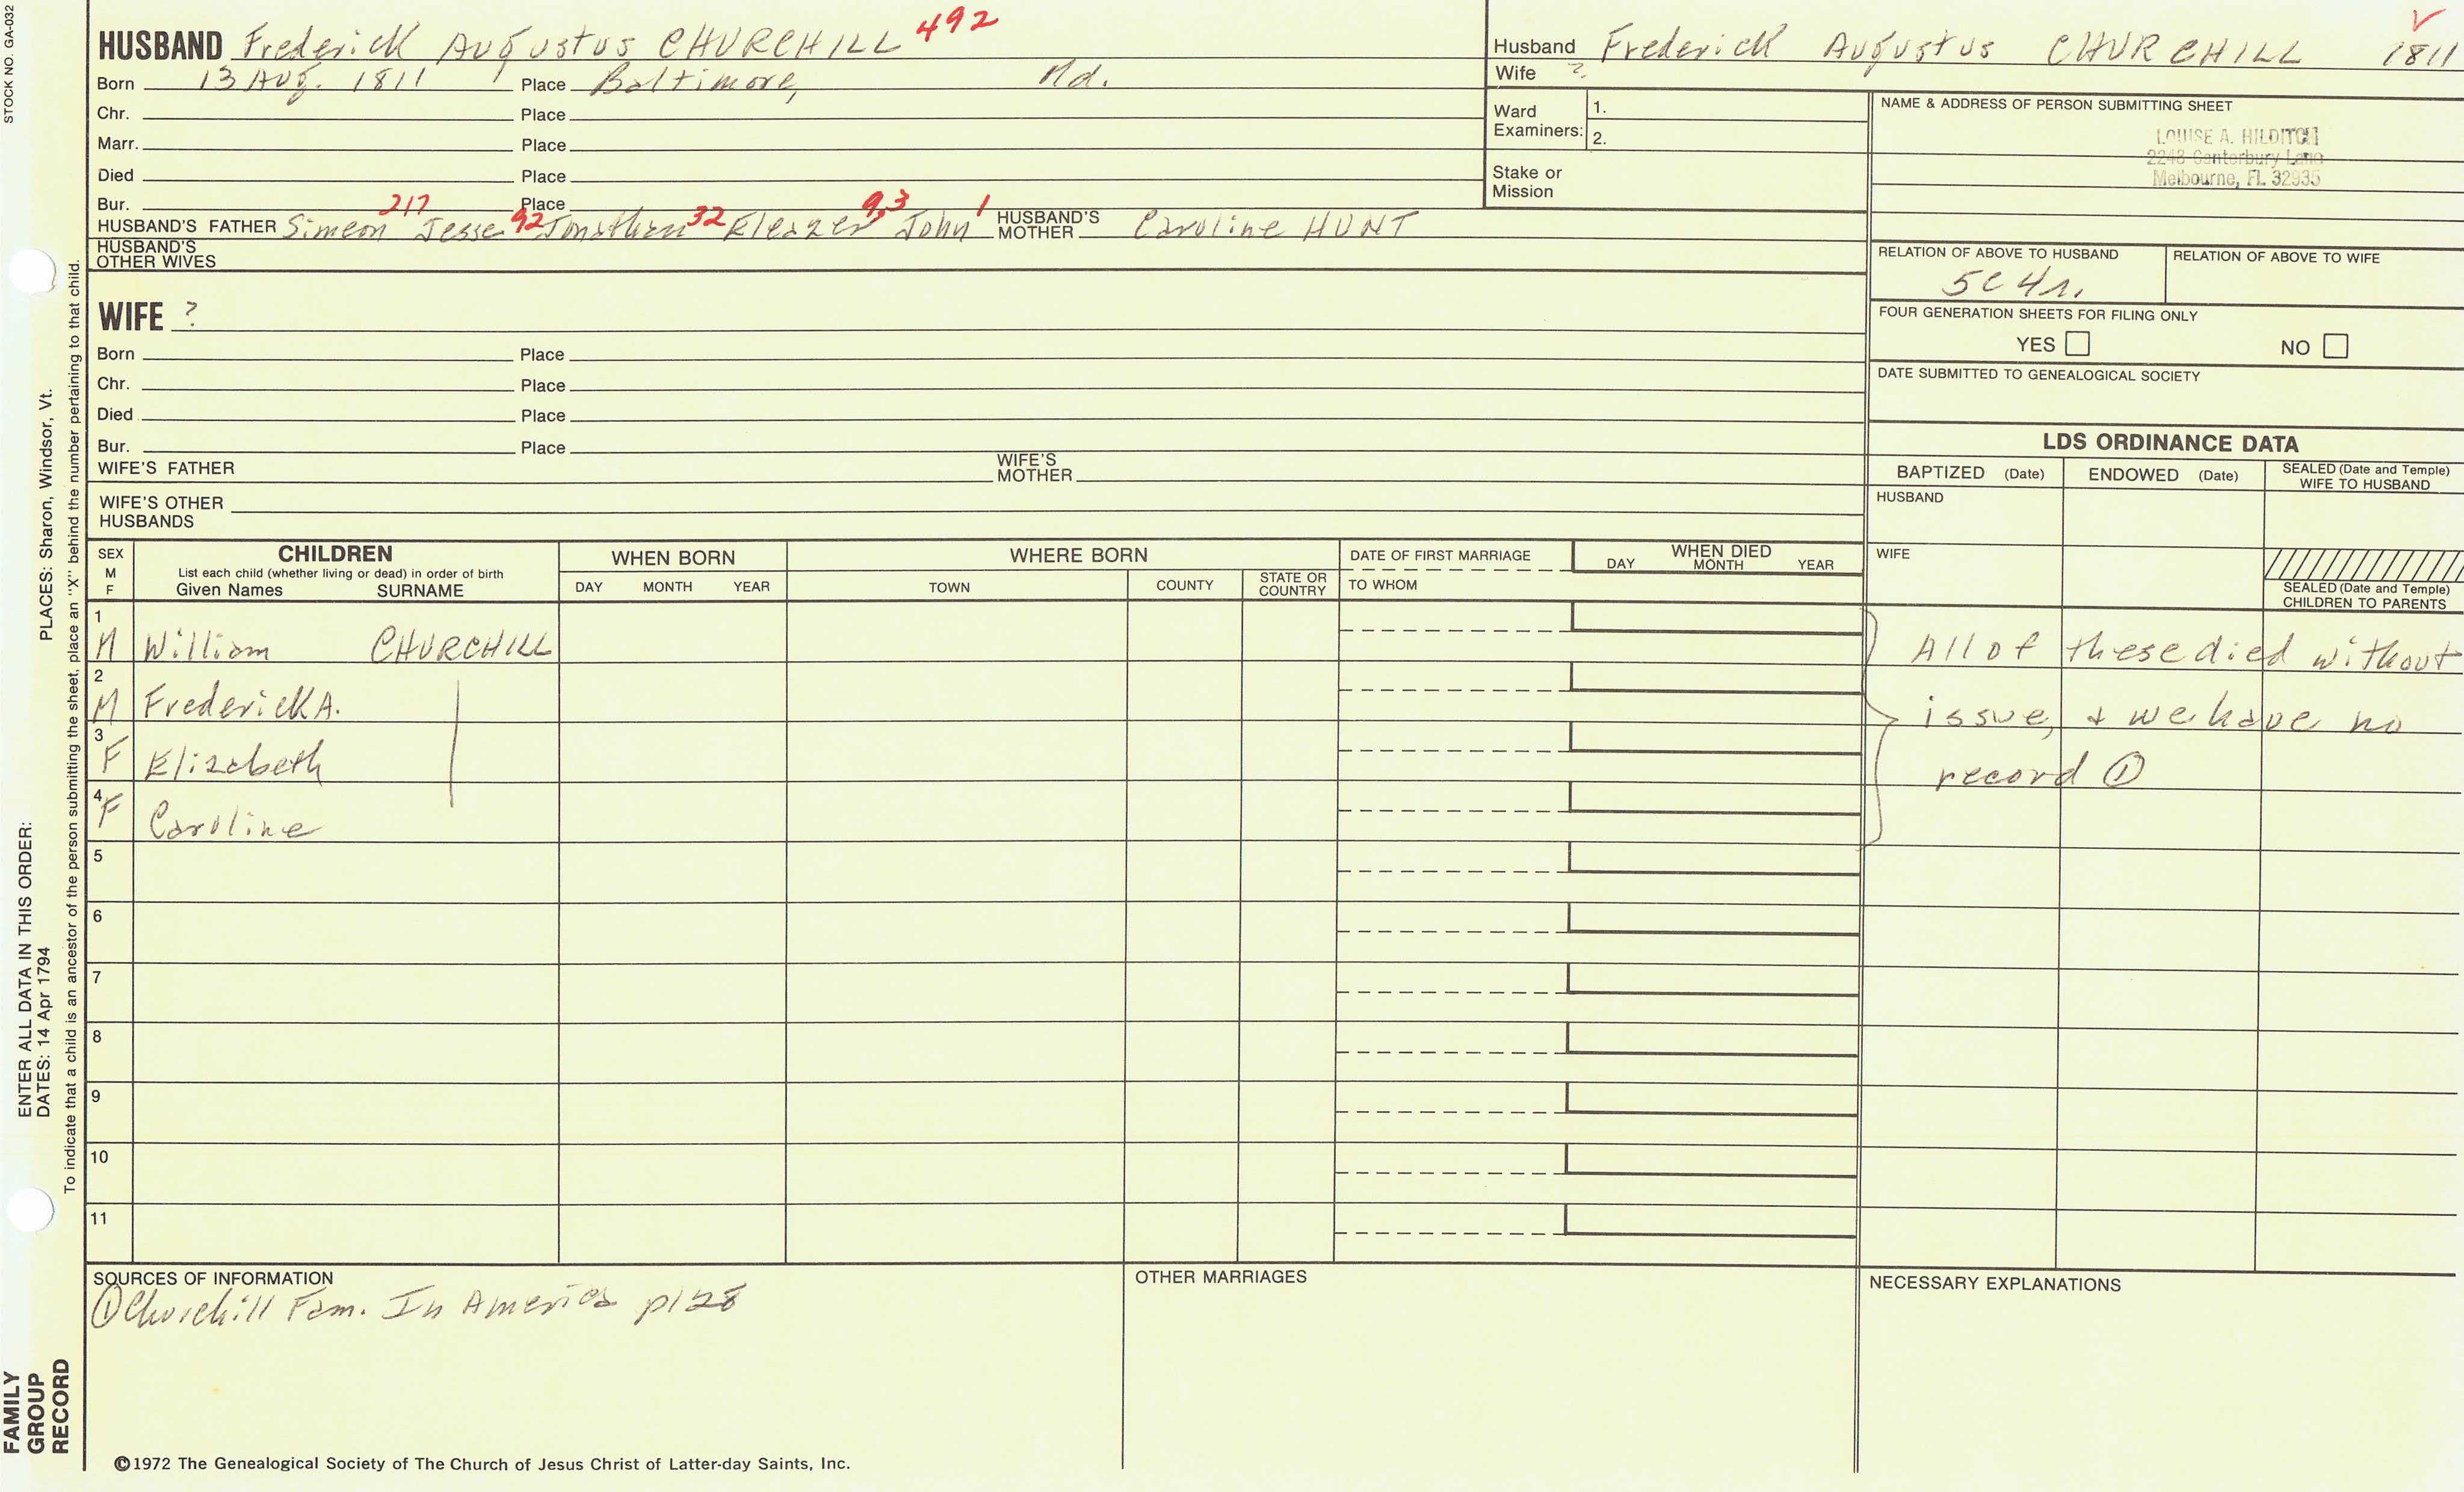 STOCK NO. GA-032
HUSBAND Frederick Augustus CHURCHILL 492
Born 13 Aug. 1811 Place Baltimore, Md.
Chr. Place
Marr. Place
Died Place
Bur. Place
HUSBAND'S FATHER Simeon 217 Jesse 92 Jonathan 32 Eleazer 9,3 John 1 HUSBAND'S MOTHER Caroline HUNT
HUSBAND'S OTHER WIVES
Husband Frederick Augustus CHURCHILL 1811
Wife ?
Ward Examiners: 1.
2.
Stake or Mission
NAME & ADDRESS OF PERSON SUBMITTING SHEET
LOUISE A. HILDITCH
2248 Canterbury Lane
Melbourne, FL 32935
RELATION OF ABOVE TO HUSBAND RELATION OF ABOVE TO WIFE
5C 4r.
FOUR GENERATION SHEETS FOR FILING ONLY
YES NO
DATE SUBMITTED TO GENEALOGICAL SOCIETY
WIFE ?
Born Place
Chr. Place
Died Place
Bur. Place
WIFE'S FATHER WIFE'S MOTHER
WIFE'S OTHER HUSBANDS
LDS ORDINANCE DATA
BAPTIZED (Date) ENDOWED (Date) SEALED (Date and Temple) WIFE TO HUSBAND
HUSBAND
WIFE
SEALED (Date and Temple) CHILDREN TO PARENTS
SEX M F
CHILDREN
List each child (whether living or dead) in order of birth
Given Names SURNAME
WHEN BORN
DAY MONTH YEAR
WHERE BORN
TOWN COUNTY STATE OR COUNTRY
DATE OF FIRST MARRIAGE
TO WHOM
WHEN DIED
DAY MONTH YEAR
1 M William CHURCHILL
2 M Frederick A.
3 F Elizabeth
4 F Caroline
5
6
7
8
9
10
11
All of these died without
issue, & we have no
record ①
SOURCES OF INFORMATION
① Churchill Fam. In America p128
OTHER MARRIAGES
NECESSARY EXPLANATIONS
©1972 The Genealogical Society of The Church of Jesus Christ of Latter-day Saints, Inc.
FAMILY
GROUP
RECORD
ENTER ALL DATA IN THIS ORDER:
DATES: 14 Apr 1794 PLACES: Sharon, Windsor, Vt.
To indicate that a child is an ancestor of the person submitting the sheet, place an "X" behind the number pertaining to that child.